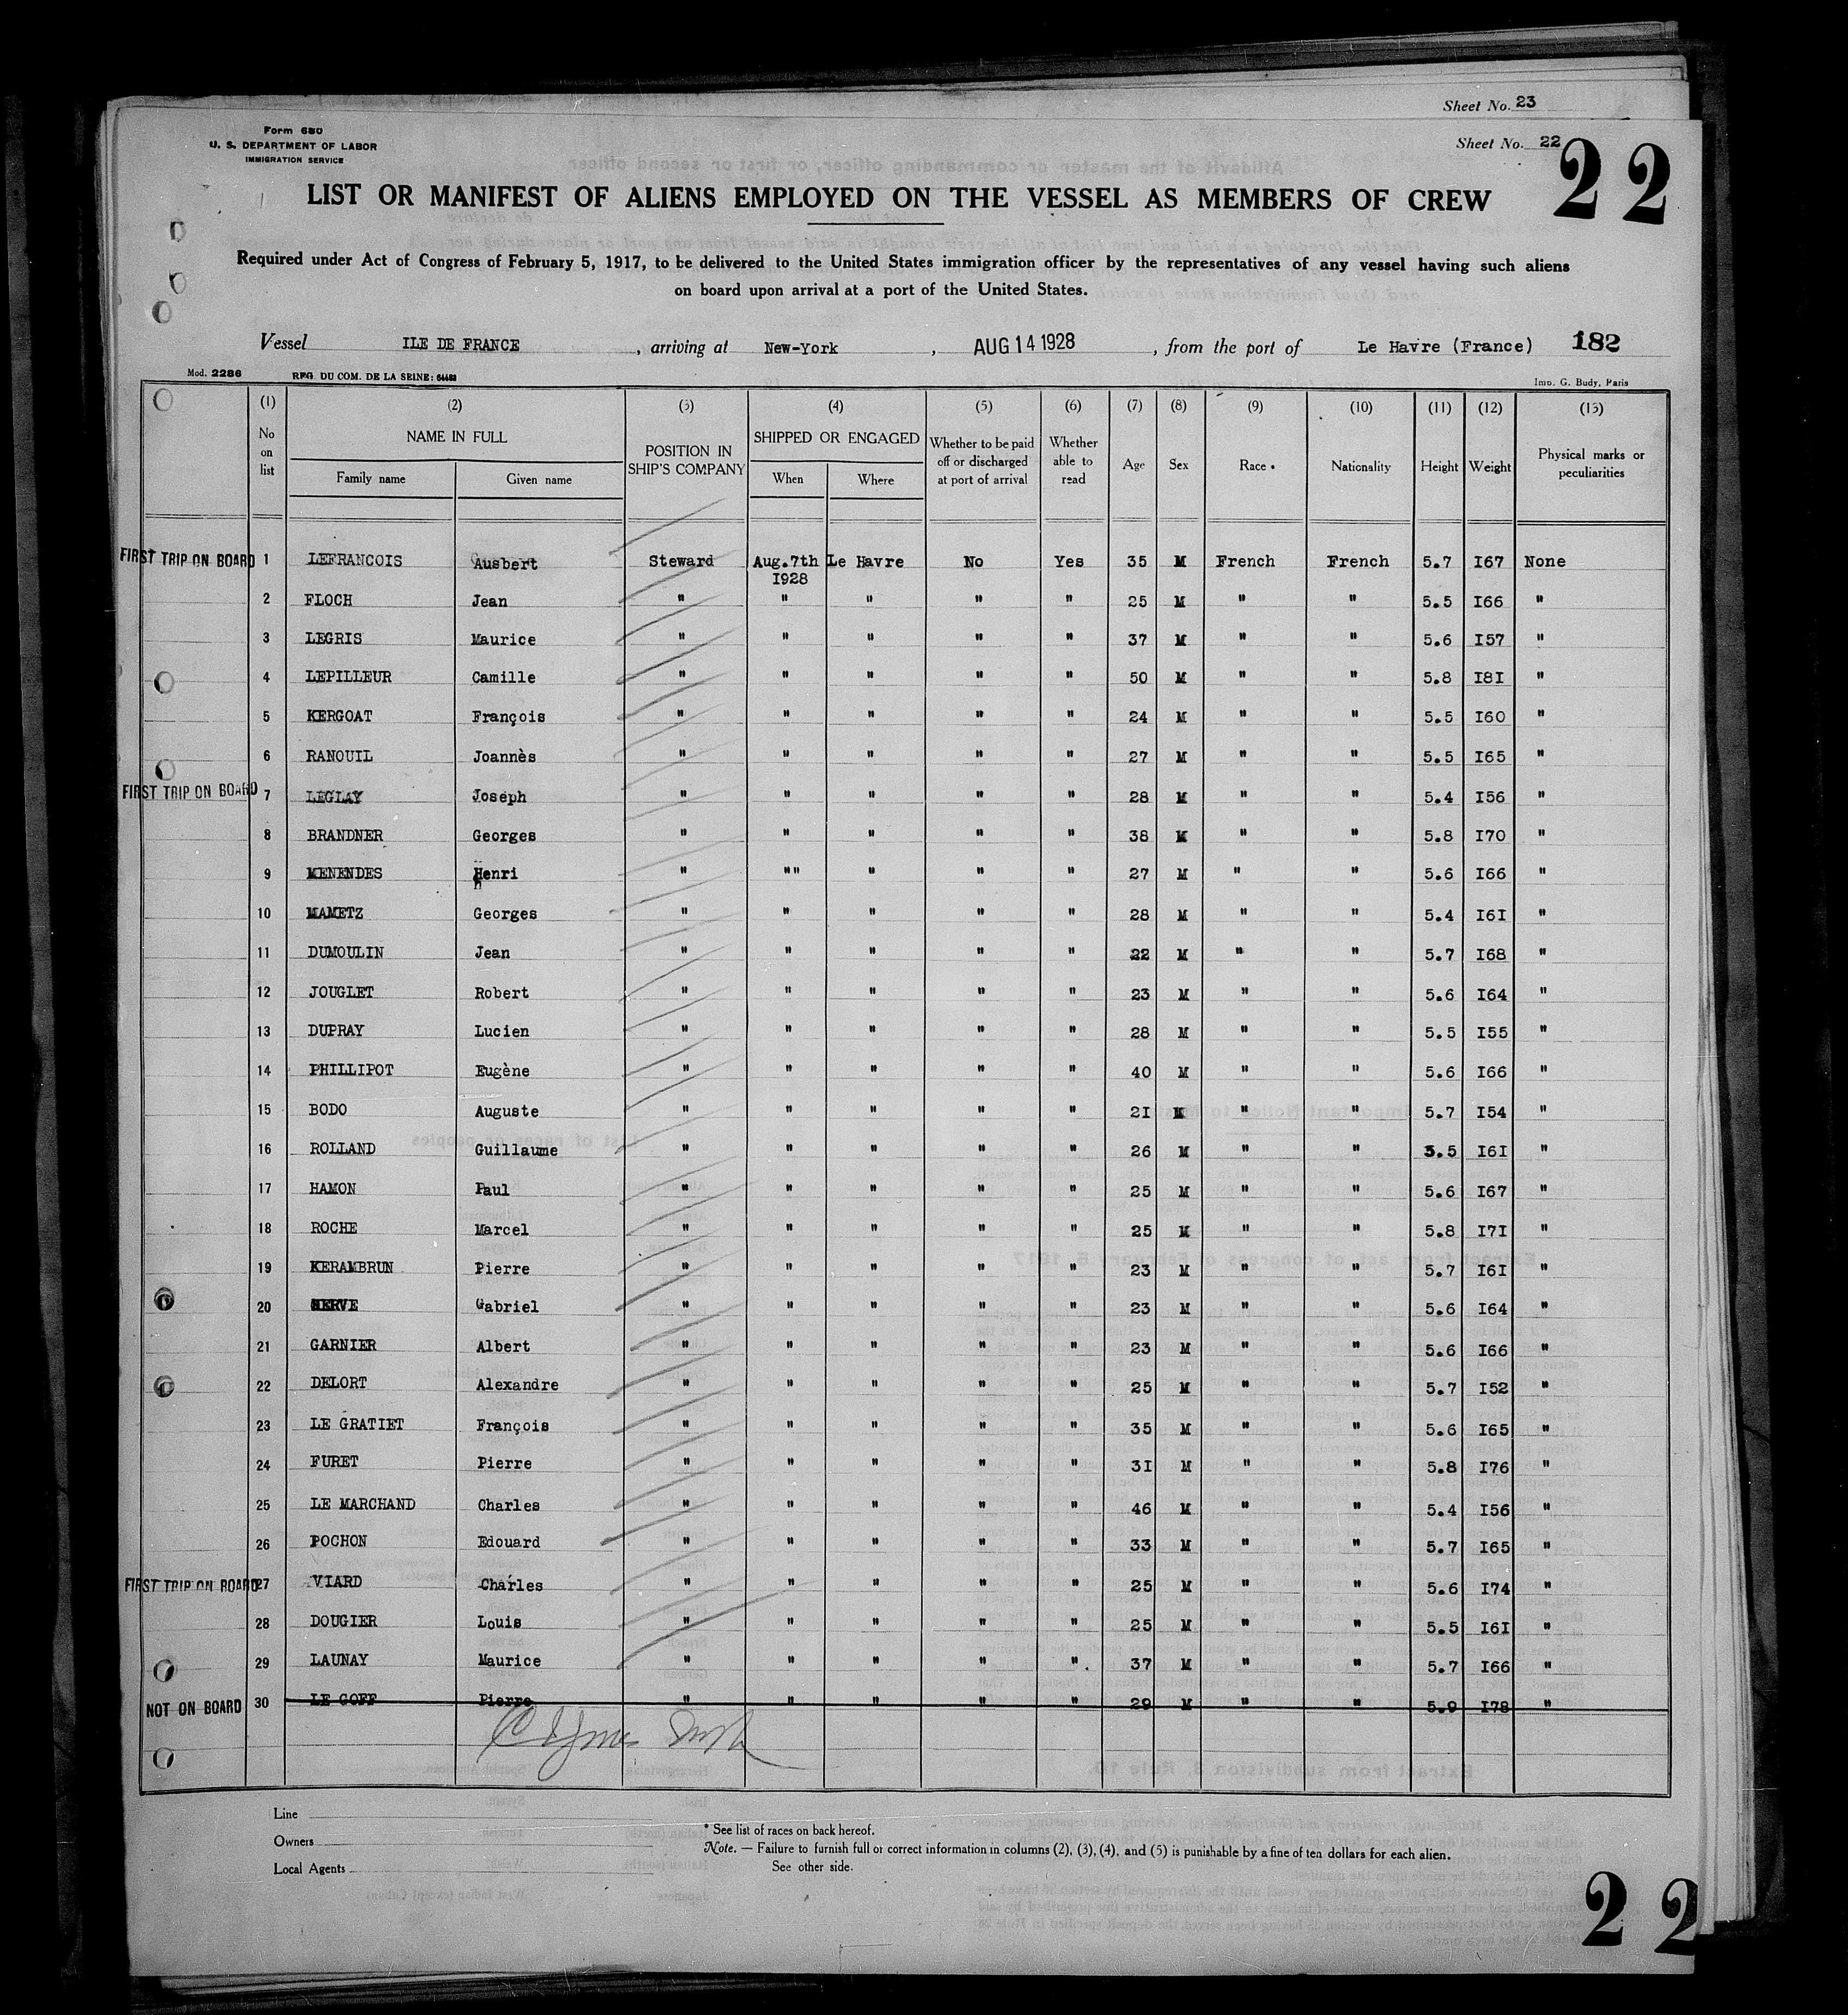 Sheet No. 23
Form 680
U. S. DEPARTMENT OF LABOR
IMMIGRATION SERVICE
Sheet No. 22
22
LIST OR MANIFEST OF ALIENS EMPLOYED ON THE VESSEL AS MEMBERS OF CREW
Required under Act of Congress of February 5, 1917, to be delivered to the United States immigration officer by the representatives of any vessel having such aliens
on board upon arrival at a port of the United States.
Vessel ILE DE FRANCE , arriving at New-York , AUG 14 1928 , from the port of Le Havre (France) 182
Mod. 2286 REG. DU COM. DE LA SEINE: Imp. G. Budy, Paris
(1) (2) (3) (4) (5) (6) (7) (8) (9) (10) (11) (12) (13)
No on list NAME IN FULL Family name Given name POSITION IN SHIP'S COMPANY SHIPPED OR ENGAGED When Where Whether to be paid off or discharged at port of arrival Whether able to read Age Sex Race * Nationality Height Weight Physical marks or peculiarities
FIRST TRIP ON BOARD 1 LEFRANCOIS Ausbert Steward Aug.7th 1928 Le Havre No Yes 35 M French French 5.7 I67 None
2 FLOCH Jean " " " " " 25 M " " 5.5 I66 "
3 LEGRIS Maurice " " " " " 37 M " " 5.6 I57 "
4 LEPILLEUR Camille " " " " " 50 M " " 5.8 I8I "
5 KERGOAT François " " " " " 24 M " " 5.5 I60 "
6 RANOUIL Joannès " " " " " 27 M " " 5.5 I65 "
FIRST TRIP ON BOARD 7 LEGLAY Joseph " " " " " 28 M " " 5.4 I56 "
8 BRANDNER Georges " " " " " 38 M " " 5.8 I70 "
9 MENENDES Henri " "" " " " 27 M " " 5.6 I66 "
10 MAMETZ Georges " " " " " 28 M " " 5.4 I6I "
11 DUMOULIN Jean " " " " " 22 M " " 5.7 I68 "
12 JOUGLET Robert " " " " " 23 M " " 5.6 I64 "
13 DUPRAY Lucien " " " " " 28 M " " 5.5 I55 "
14 PHILLIPOT Eugène " " " " " 40 M " " 5.6 I66 "
15 BODO Auguste " " " " " 2I M " " 5.7 I54 "
16 ROLLAND Guillaume " " " " " 26 M " " 5.5 I6I "
17 HAMON Paul " " " " " 25 M " " 5.6 I67 "
18 ROCHE Marcel " " " " " 25 M " " 5.8 I7I "
19 KERAMBRUN Pierre " " " " " 23 M " " 5.7 I6I "
20 HERVE Gabriel " " " " " 23 M " " 5.6 I64 "
21 GARNIER Albert " " " " " 23 M " " 5.6 I66 "
22 DELORT Alexandre " " " " " 25 M " " 5.7 I52 "
23 LE GRATIET François " " " " " 35 M " " 5.6 I65 "
24 FURET Pierre " " " " " 3I M " " 5.8 I76 "
25 LE MARCHAND Charles " " " " " 46 M " " 5.4 I56 "
26 POCHON Edouard " " " " " 33 M " " 5.7 I65 "
FIRST TRIP ON BOARD 27 VIARD Charles " " " " " 25 M " " 5.6 I74 "
28 DOUGIER Louis " " " " " 25 M " " 5.5 I6I "
29 LAUNAY Maurice " " " " " 37 M " " 5.7 I66 "
NOT ON BOARD 30 LE GOFF Pierre " " " " " 29 M " " 5.9 I78 "
Line
Owners
Local Agents
* See list of races on back hereof.
Note. — Failure to furnish full or correct information in columns (2), (3), (4), and (5) is punishable by a fine of ten dollars for each alien.
See other side.
22